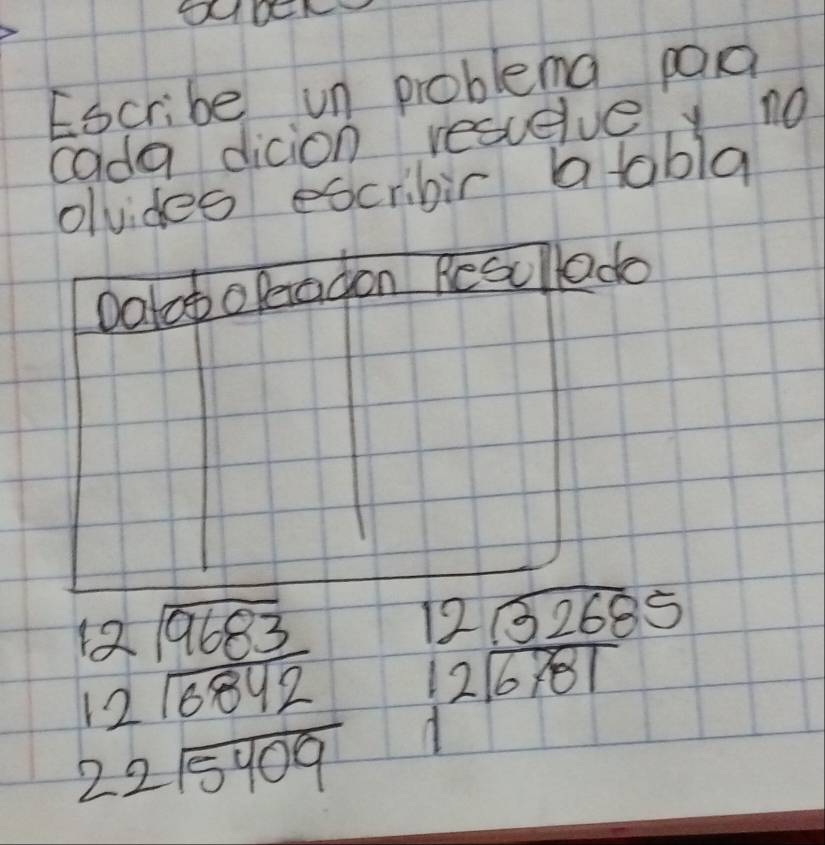 Escribe un problema para
cada dicion resuelve y no
olvides escribir la tabla
Datos operacion Resultado
12 9683 12 32685
12 6842 12 6781
22 5409